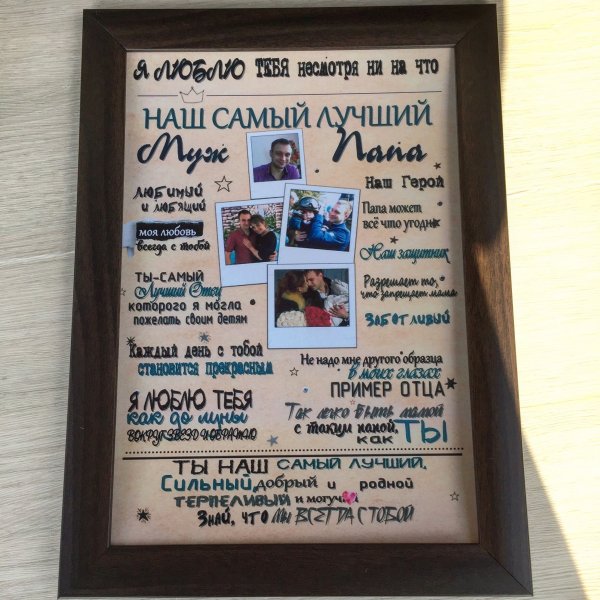 Я ЛЮБЛЮ ТЕБЯ несмотря ни на что
НАШ САМЫЙ ЛУЧШИЙ
Муж Папа
ЛЮБИМЫЙ
и любящий
моя любовь
всегда с тобой
ТЫ-САМЫЙ
Лучший Отец
которого я могла
пожелать своим детям
Каждый день с тобой
становится прекрасным
Я ЛЮБЛЮ ТЕБЯ
как до луны
ВОКРУГ ЗВЕЗД И ОБРАТНО
Наш Герой
Папа может
всё что угодно
Наш защитник
Разрешает то,
что запрещает мама
ЗАБОТЛИВЫЙ
Не надо мне другого образца
в моих глазах
ПРИМЕР ОТЦА
Так легко быть мамой
с таким папой,
как ТЫ
ТЫ НАШ САМЫЙ ЛУЧШИЙ,
Сильный, добрый и родной
ТЕРПЕЛИВЫЙ и могуч
Знай, что МЫ ВСЕГДА С ТОБОЙ